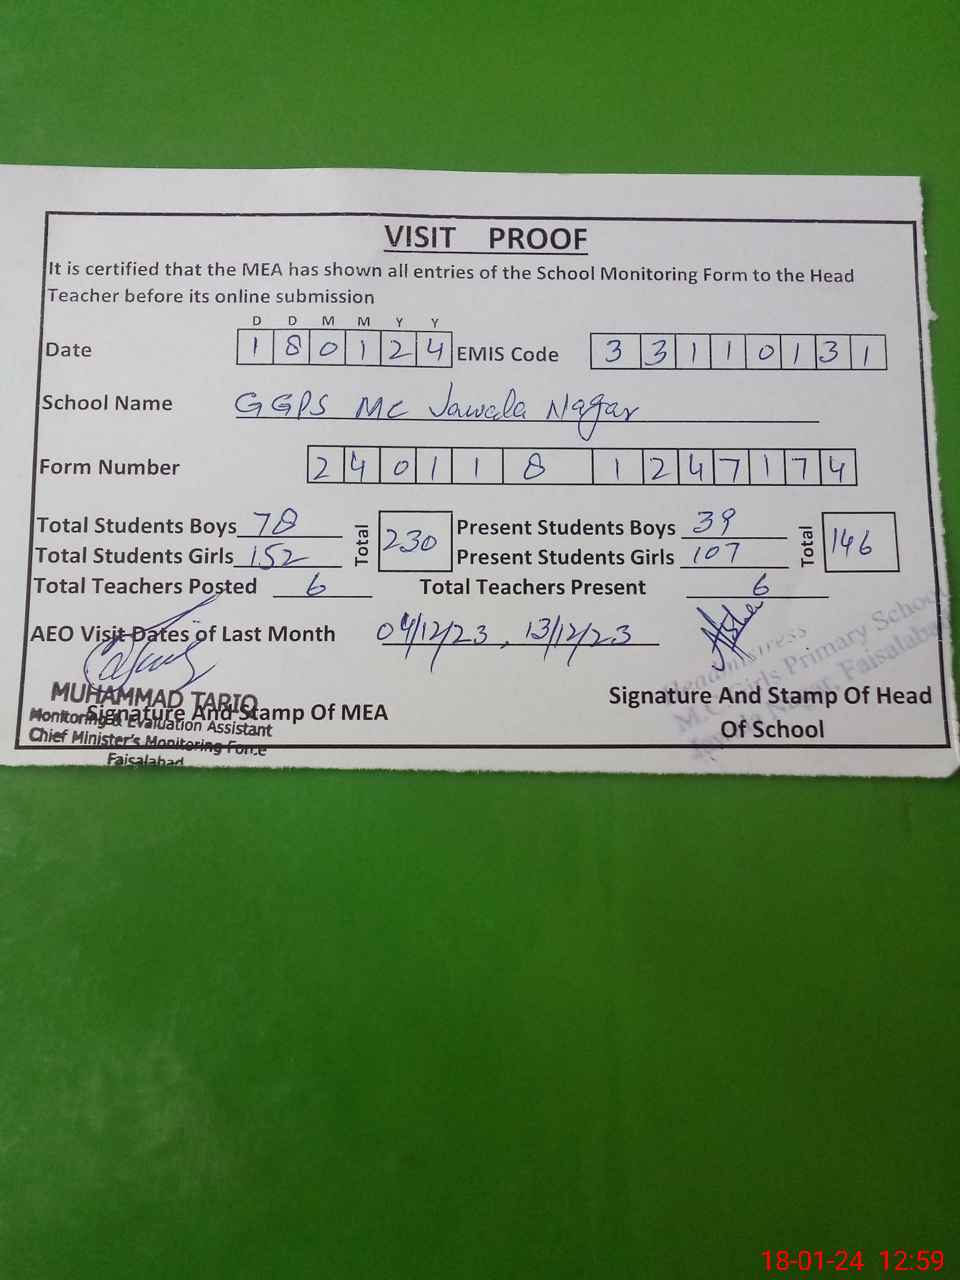 VISIT PROOF
It is certified that the MEA has shown all entries of the School Monitoring Form to the Head
Teacher before its online submission
D D M M Y Y
Date 1 8 0 1 2 4 EMIS Code 3 3 1 1 0 1 3 1
School Name GGPS MC Jawala Nagar
Form Number 2 4 0 1 1 8 1 2 4 7 1 7 4
Total Students Boys 78 Total 230 Present Students Boys 39 Total 146
Total Students Girls 152 Present Students Girls 107
Total Teachers Posted 6 Total Teachers Present 6
AEO Visit Dates of Last Month 04/12/23, 13/12/23
Headmistress
M.C. Girls Primary School
Nagar, Faisalabad
MUHAMMAD TARIQ
Signature And Stamp Of MEA
Monitoring & Evaluation Assistant
Chief Minister's Monitoring Force
Faisalabad
Signature And Stamp Of Head
Of School
18-01-24 12:59